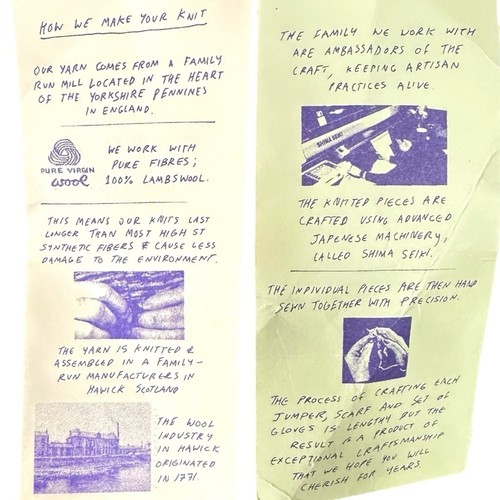 HOW WE MAKE YOUR KNIT
OUR YARN COMES FROM A FAMILY
RUN MILL LOCATED IN THE HEART
OF THE YORKSHIRE PENNINES
IN ENGLAND.
PURE VIRGIN
wool
WE WORK WITH
PURE FIBRES;
100% LAMBSWOOL.
THIS MEANS OUR KNITS LAST
LONGER THAN MOST HIGH ST
SYNTHETIC FIBERS & CAUSE LESS
DAMAGE TO THE ENVIRONMENT.
THE YARN IS KNITTED &
ASSEMBLED IN A FAMILY-
RUN MANUFACTURERS IN
HAWICK SCOTLAND
THE WOOL
INDUSTRY
IN HAWICK
ORIGINATED
IN 1771.
THE FAMILY WE WORK WITH
ARE AMBASSADORS OF THE
CRAFT, KEEPING ARTISAN
PRACTICES ALIVE.
SHIMA SEIKI
THE KNITTED PIECES ARE
CRAFTED USING ADVANCED
JAPENESE MACHINERY,
CALLED SHIMA SEIKI.
THE INDIVIDUAL PIECES ARE THEN HAND
SEWN TOGETHER WITH PRECISION.
THE PROCESS OF CRAFTING EACH
JUMPER, SCARF AND SET OF
GLOVES IS LENGTHY BUT THE
RESULT IS A PRODUCT OF
EXCEPTIONAL CRAFTSMANSHIP
THAT WE HOPE YOU WILL
CHERISH FOR YEARS.